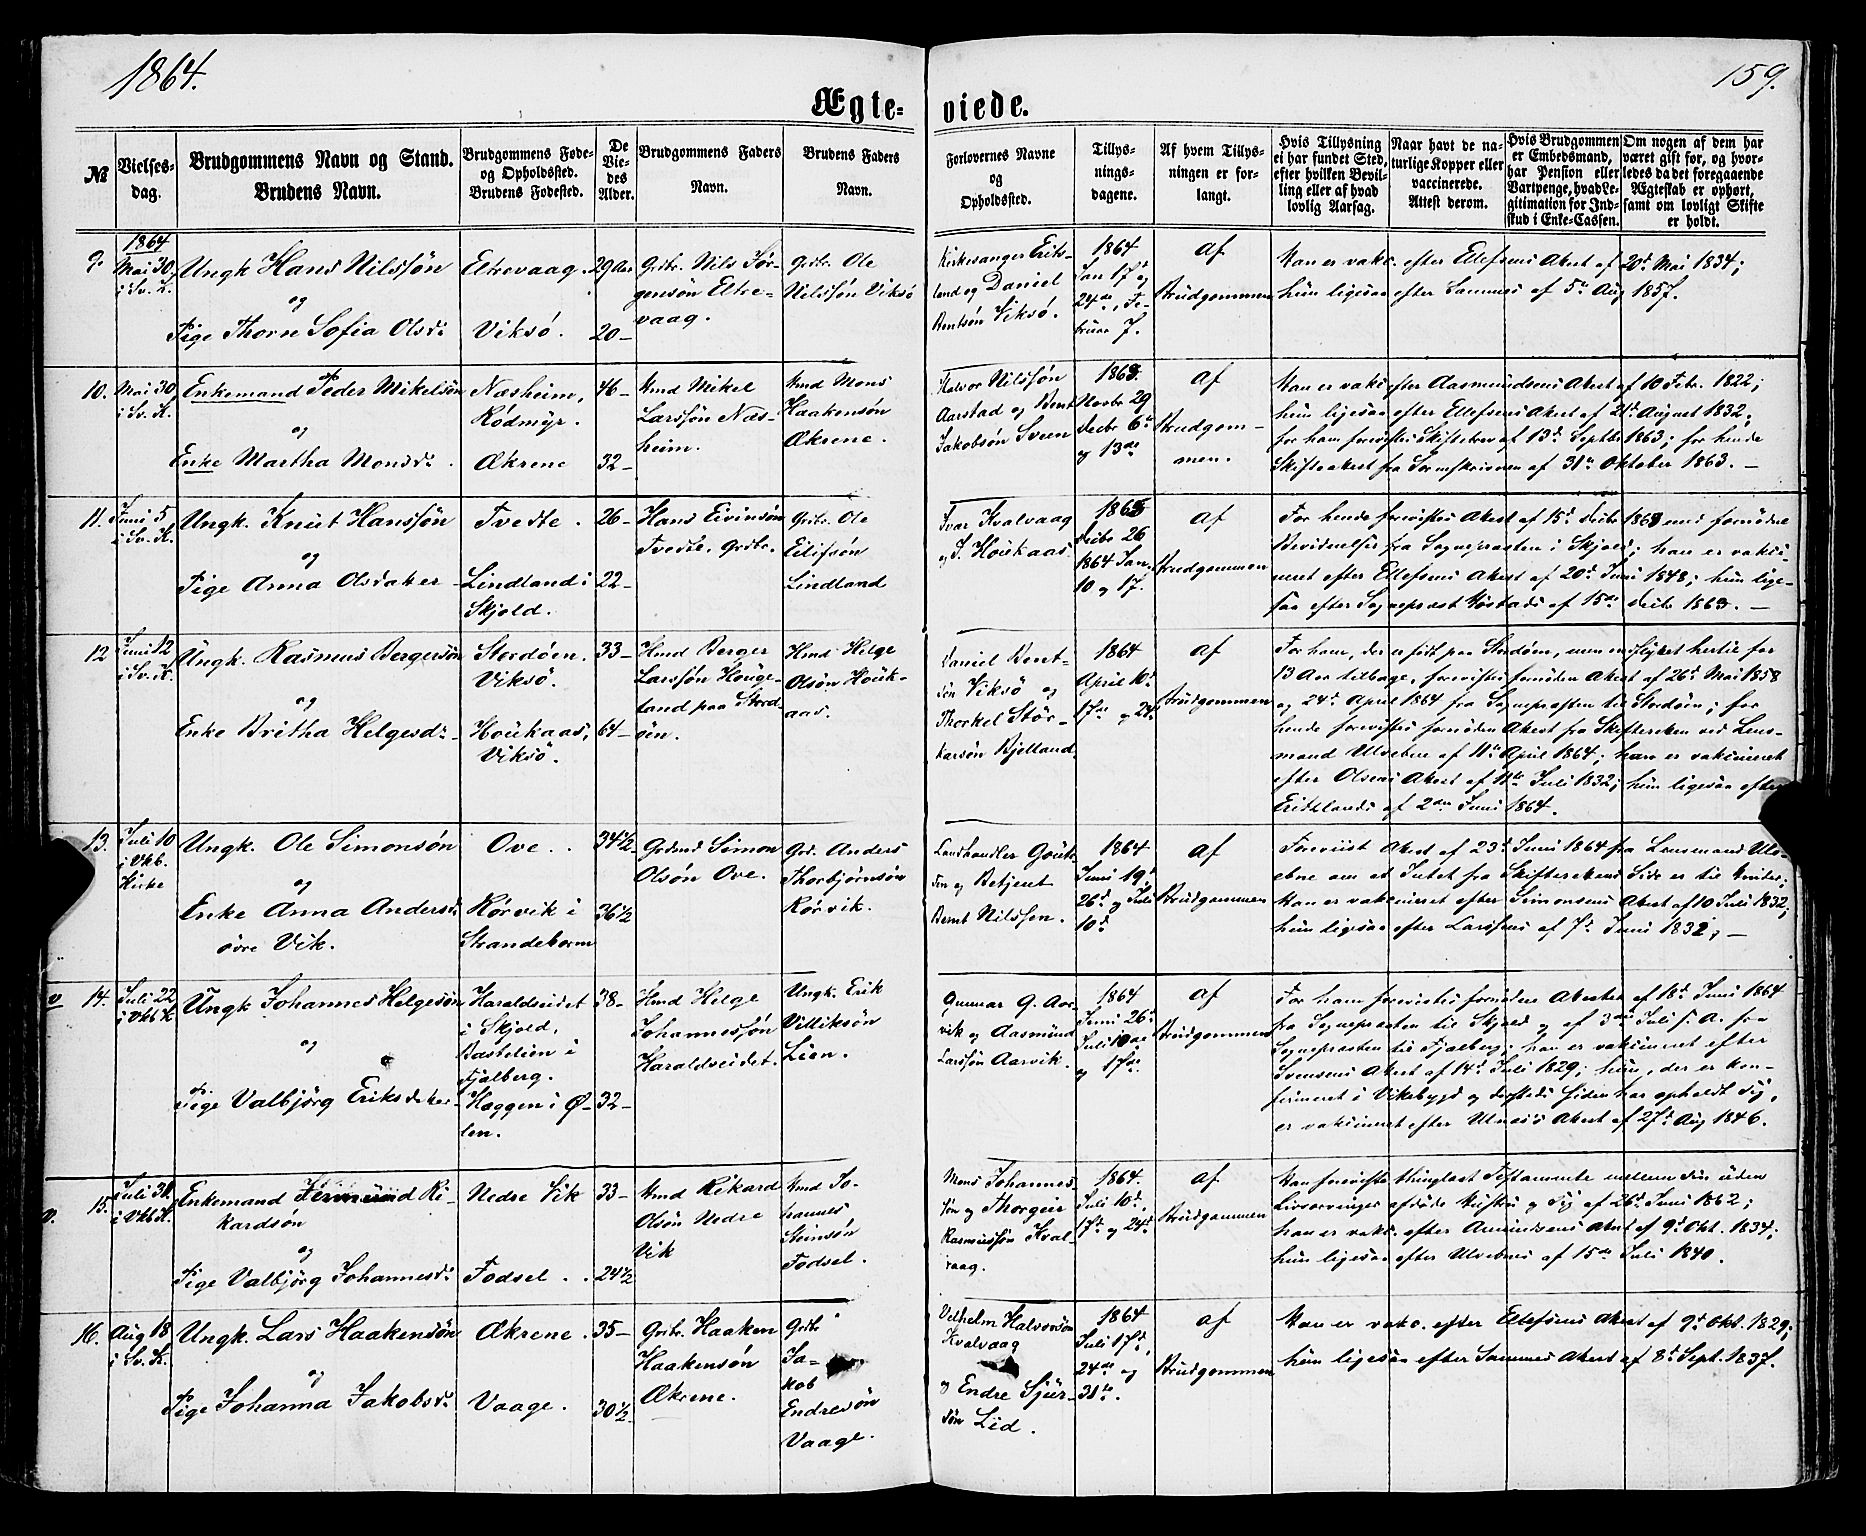 1864.
159.
Ægte-
viede.
№
Vielses-
dag.
Brudgommens Navn og Stand.
Brudens Navn.
Brudgommens Føde-
og Opholdssted.
Brudens Fødested.
De
Vie-
des
Alder.
Brudgommens Faders
Navn.
Brudens Faders
Navn.
Forlovernes Navne
og
Opholdssted.
Tillys-
nings-
dagene.
Af hvem Tillys-
ningen er for-
langt.
Hvis Tillysning
ei har fundet Sted,
efter hvilken Bevil-
ling eller af hvad
lovlig Aarsag.
Naar havt de na-
turlige Kopper eller
vaccinerede.
Attest derom.
Hvis Brudgommen
er Embedsmand,
har Pension eller
Vartpenge, hvad Le-
gitimation for Ind-
skud i Enke-Cassen.
Om nogen af dem har
været gift før, og hvor-
ledes da det foregaaende
Ægteskab er ophørt,
samt om lovligt Skifte
er holdt.
9.
1864
Mai 30,
i Sv. K.
Ungk. Hans Nilssön
og
Pige Thorne Sofia Olsd:
Eltrevaag.
Viksö.
29 Aar
20 –
Grdbr. Nils Jør-
gensön Eltre-
vaag.
Grdbr. Ole
Nilssön Viksö
Kirkesanger Erits-
land og Daniel
Bentsön Viksö.
1864
Jan 17d og
24de, Fe-
bruar 7.
af
Brudgommen
Han er vakc. efter Ellefsens Attest af 20d Mai 1834;
hun ligesaa efter Sammes af 5te Aug 1857.
10.
Mai 30,
i Sv. K.
Enkemand Peder Mikelsön
og
Enke Martha Monsd:
Næsheim,
Rödmyr.
Ækrene
46 –
32 –
Hmd Mikel
Larssön Næs-
heim.
Hmd Mons
Haakensön
Ækrene.
Halvor Nilssön
Aarstad og Bent
Jakobsön Sveen
1863.
Novbr 29
Decbr 6te
og 13de
af
Brudgom-
men.
Han er vakc efter Aasmundsens Attest af 10 Febr. 1822;
hun ligesaa efter Ellefsens Attest af 21d August 1832;
for ham forevistes Skiftebrev af 13d Septbr 1863; for hende
Skifteattest fra Sorenskriveren af 31te Oktober 1863. –
11.
Juni 5
i Sv. K.
Ungk. Knut Hanssön
og
Pige Anna Olsdatter
Tvedte.
Lindland i
Skjold.
26 –
22 –
Hans Eivinsön
Tvedte, Grdbr.
Grdbr. Ole
Eilifsön
Lindland
Ivar Kvalvaag
og S. Houkaas
1863
Decbr 26
1864 Jan.
10 og 17.
af
Brudgommen
For hende forevistes Attest af 15d Decbr 1863 med fornödne
Bevidnelser fra Sognepræsten i Skjold; han er vakci-
neret efter Ellefsens Attest af 20d Juni 1848; hun lige-
saa efter Sognepræst Röstads af 15de Decbr 1863. –
12
Juni 12
i Sv. K.
Ungk. Rasmus Bergersön
og
Enke Britha Helgesd:
Stordöen.
Viksö.
Houkaas,
Viksö.
33 –
64 –
Hmd Berger
Larssön Houge-
land paa Stord-
öen.
Hmd Helge
Olsön Houk-
aas.
Daniel Bent-
sön Viksö og
Thorkel Stör-
karsön Bjelland.
1864
April 10d
17de og 24d
af
Brudgommen
For ham, der er födt paa Stordöen, men indflyttet hertil for
13 Aar tilbage, forevistes fornöden Attest af 26d Mai 1858
og 24d April 1864 fra Sognepræsten til Stordöen; for
hende forevistes fornöden Attest fra Skifteretten ved Lens-
mand Ulvebne af 11te April 1864; han er vakcineret
efter Olsens Attest af 11te Juli 1832; hun ligesaa efter
Eritslands af 2den Juni 1864.
13.
Juli 10
i Vkb.
Kirke
Ungk. Ole Simonsön
og
Enke Anna Andersd:
övre Vik.
Ove.
Rörvik i
Strandeborm
34½
36½
Grdmd Simon
Olsön Ove.
Grd. Anders
Thorbjörnsön
Rörvik.
Landhandler Gout-
sen og Betjent
Bernt Nilssen.
1864
Juni 19d
26d og Juli
10d
af
Brudgommen
Foreviist Attest af 23d Juni 1864 fra Lensmand Ulv-
ebne om at Intet fra Skifterettens Side er til Hinder;
han er vakcineret efter Simonsens Attest af 10 Juli 1832;
hun ligesaa efter Larssens af 7d Juni 1832; –
v
14.
Juli 22
i Vkb K
Ungk Johannes Helgesön
og
Pige Valbjörg Eriksdatter
Haraldseidet
i Skjold,
Bastelien i
Fjelberg.
Hæggen i Ø-
len.
38 –
32 –
Hmd Helge
Johannessön
Haraldseidet.
Ungk. Erik
Villiksön
Lien.
Gunnar G. Aar-
vik og Aasmund
Larssön Aarvik.
1864
Juni 26d
Juli 10de
og 17de
af
Brudgommen
For ham forevistes fornödne Attester af 18d Juni 1864
fra Sognepræsten til Skjold og af 3die Juli s. A. fra
Sognepræsten til Fjelberg; han er vakcineret efter
Svensens Attest af 14d Juli 1829; hun, der er kon-
firmeret i Vikebygd og dersteds siden har opholdt sig,
er vakcineret efter Ulnæs's Attest af 27d Aug 1846.
v.
15.
Juli 31
i Vkb K.
Enkemand Jermund Ri-
kardsön
og
Pige Valbjörg Johannesd:
Nedre Vik
Fodsel.
33 –
24½
Hmd Rikard
Olsön Nedre
Vik
Hmd Jo-
hannes
Steinsön
Fodsel.
Mons Johannes-
sön og Thorgeir
Rasmussön Kval-
vaag.
1864.
Juli 10d,
17d og 24d
af
Brudgommen
Han foreviste thinglæst Testamente mellem sin uden
Livsarvinger afdöde Hustru og sig af 26d Juni 1862;
han er vakc. efter Amundsens Attest af 9d Okt. 1834;
hun ligesaa efter Ulvebnes af 15de Juli 1840.
16.
Aug 18
i Sv. K.
Ungk. Lars Haakensön
og
Pige Johanna Jakobsd:
Ækrene.
Vaage.
35 –
30½
Grdbr. Haaken
Haakensön
Ækrene.
Grdbr
Ja-
kob
Endresön
Vaage.
Vilhelm Halvorsön
Kvalvaag
og Endre Sjur-
sön Lid.
1864
Juli 17d,
24de og
31te.
af
Brudgommen
Han er vakc. efter Ellefsens Attest af 9d Okt. 1829;
hun ligesaa efter Sammes Attest af 8d Sept. 1837.